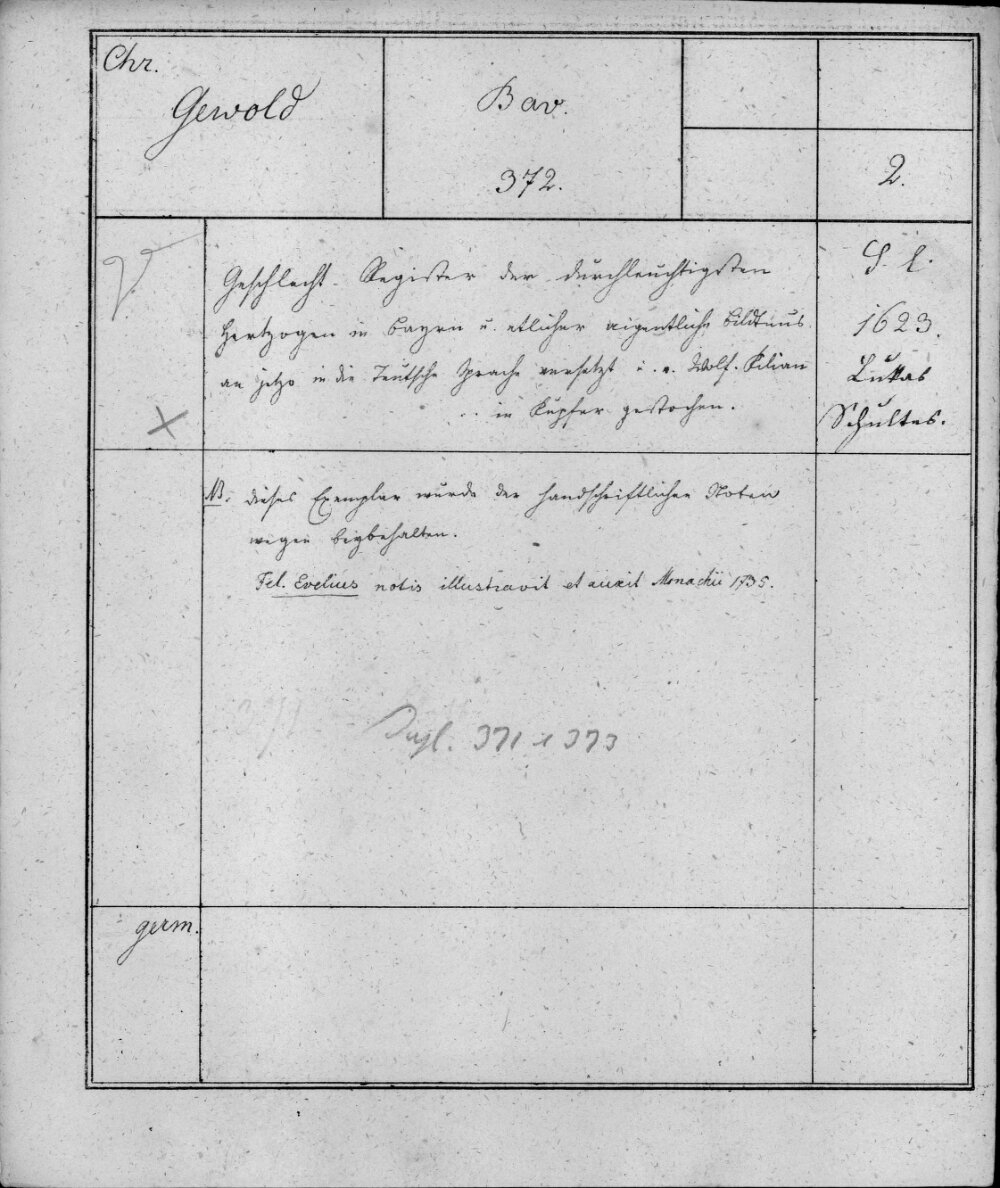 Chr.
Gewold
Bav.
372.
2.
Geschlecht-Register der durchleuchtigsten
Hertzogen in Bayrn u. etlicher aigentliche Bildtnus
an jetzo in die Teutsche Sprache versetzt u. v. Wolf. Kilian
in Kupfer gestochen.
S. l.
1623.
Lukas
Schultes.
NB. dieses Exemplar wurde der handschriftlichen Noten
wegen beybehalten.
Fel. Evelius notis illustravit et auxit Monachii 1735.
Dupl. 371 u 373
germ.